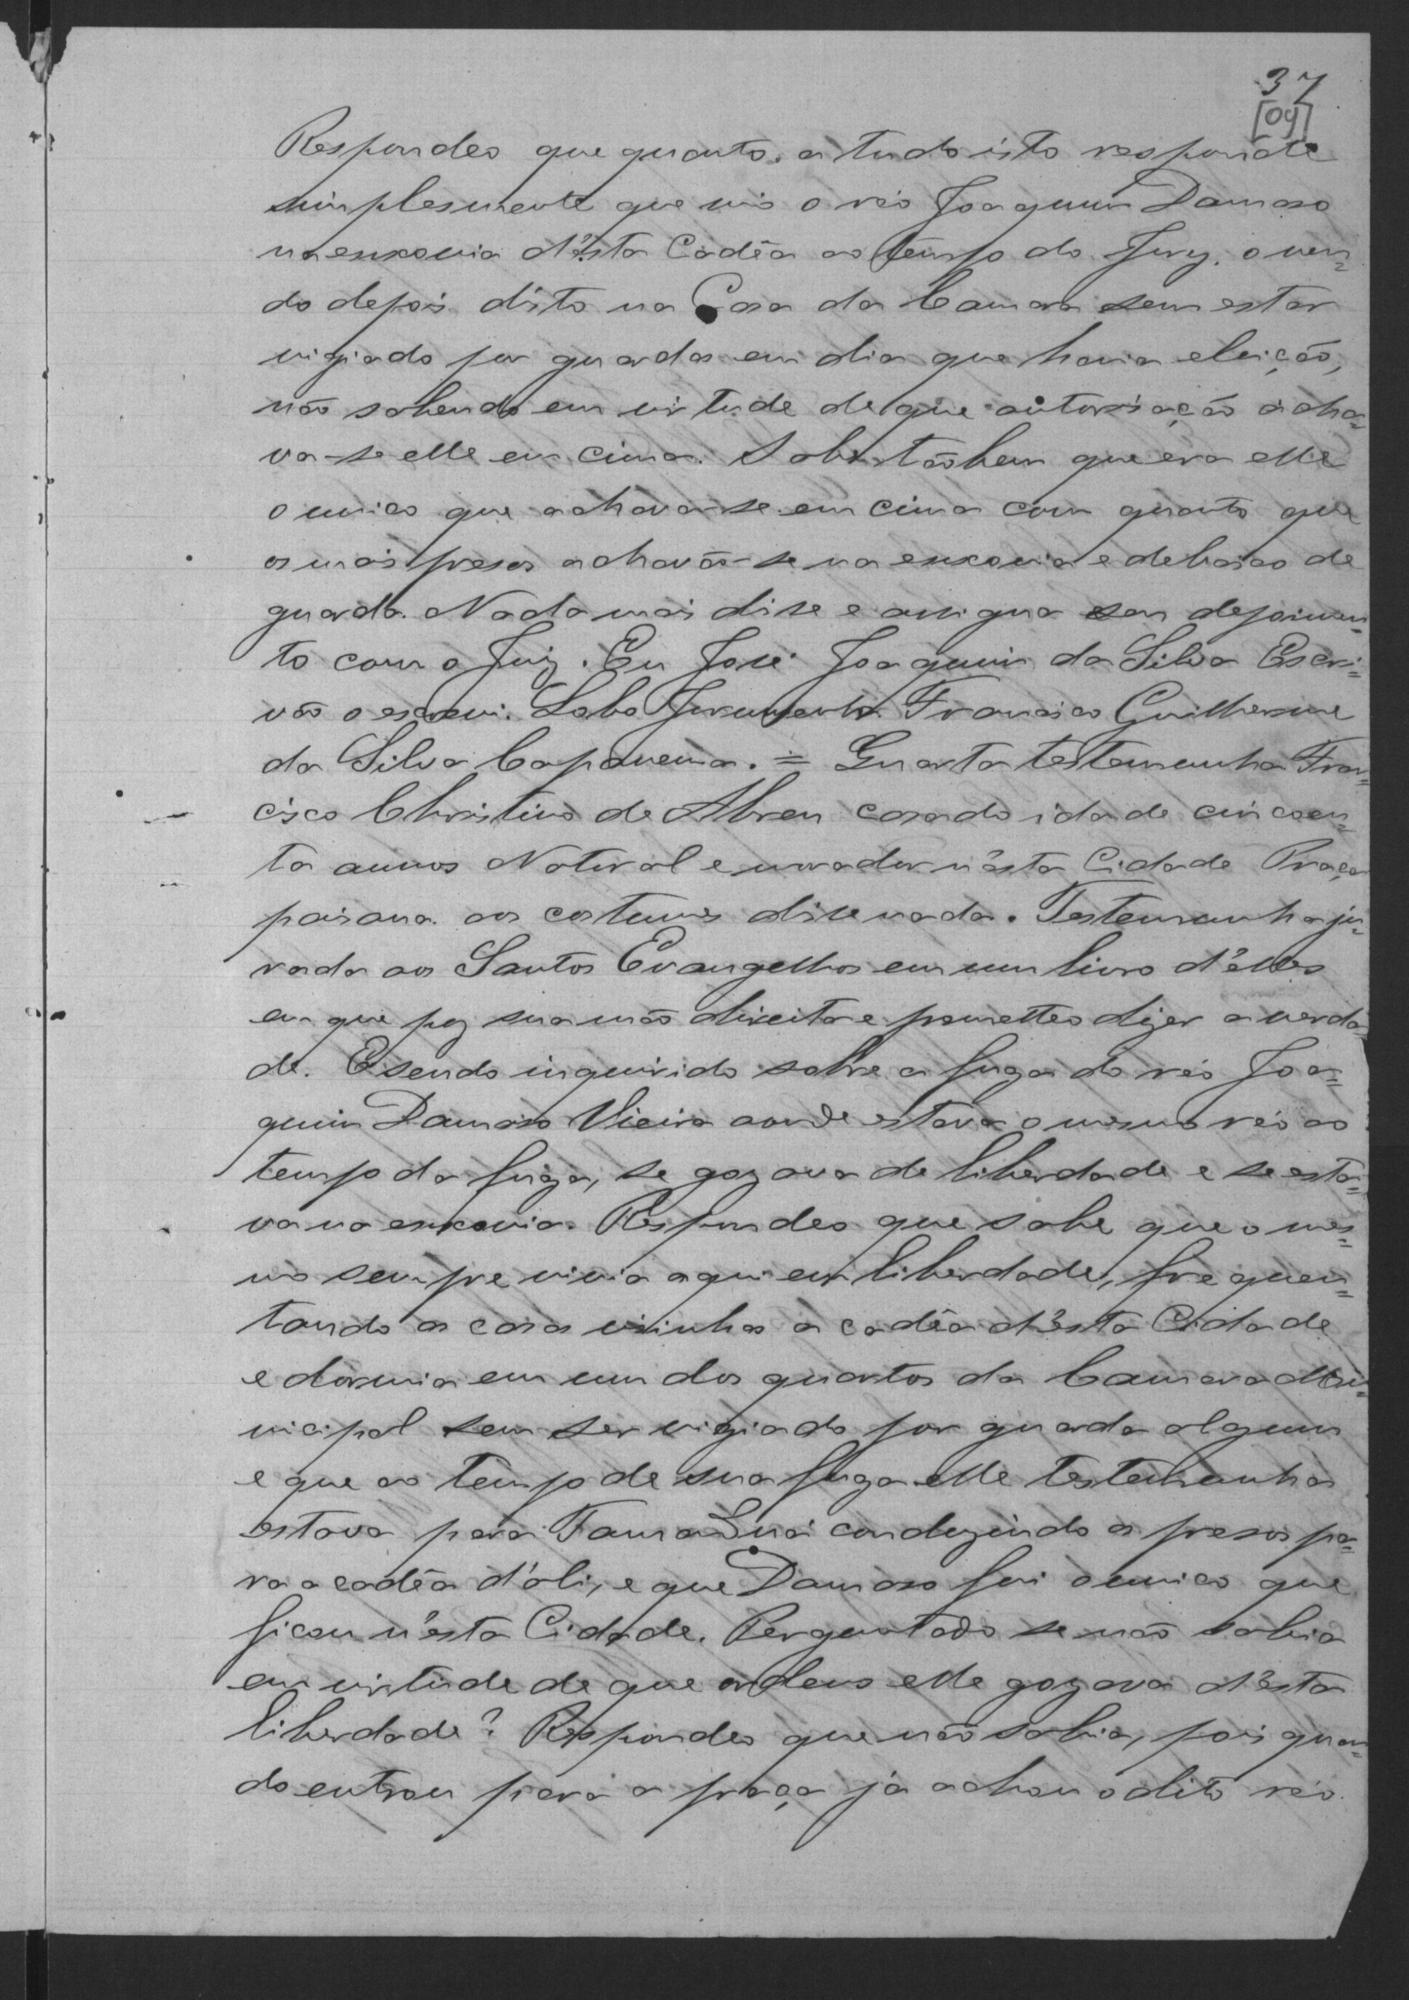 37
[09]
Respondeo que quanto, a tudo isto responde
simplesmente que vio o réo Joaquim Damaso
na enxovia d'ésta Cadêa ao tempo do Jury. o ven=
do depois dito na Casa da Camara sem estar
vigiado por guardas em dia que havia eleição,
não sabendo em virtude de que autorisação acha=
va-se elle em cima. Sabe tãobem que era elle
o unico que achava-se em cima com quanto que
os mais presos achavão-se na enxovia e debaixo de
guarda. Nada mais disse e assigna seu depoimen=
to com o Juiz. Eu José Joaquim da Silva Escri=
vão o escrevi. Lobo Francisco Guilherme
da Silva Capanema. = Quarta testemunha Fran=
cisco Christino de Abreu casado idade cincoen=
ta annos Natural e morador n'ésta Cidade Praça
paisana. aos costumes disse nada. Testemunha ju=
rada aos Santos Evangelhos em um livro d'elles
em que poz sua mão direita e prometteo dizer a verda=
de. E sendo inquirido sobre a fuga do réo Joa=
quim Damaso Vieira aonde estava o mesmo réo ao
tempo da fuga, se gozava de liberdade e se esta=
va na enxovia. Respondeo que sabe que o mes=
mo sempre vivia aqui em liberdade, frequen=
tando as casas visinhas a cadêa d'ésta Cidade
e dormia em um dos quartos da Camara Mu=
nicipal sem ser vigiado por guarda algum
e que ao tempo de sua fuga elle testemunha
estava para Tamanduá conduzindo os presos pa=
ra a cadêa d'ali, e que Damaso foi o unico que
ficou n'ésta Cidade. Perguntado se não sabia
em virtude de que ordens elle gozava d'ésta
liberdade? Respondeo que não sabia, pois quan=
do entrou para a praça já achou o dito réo